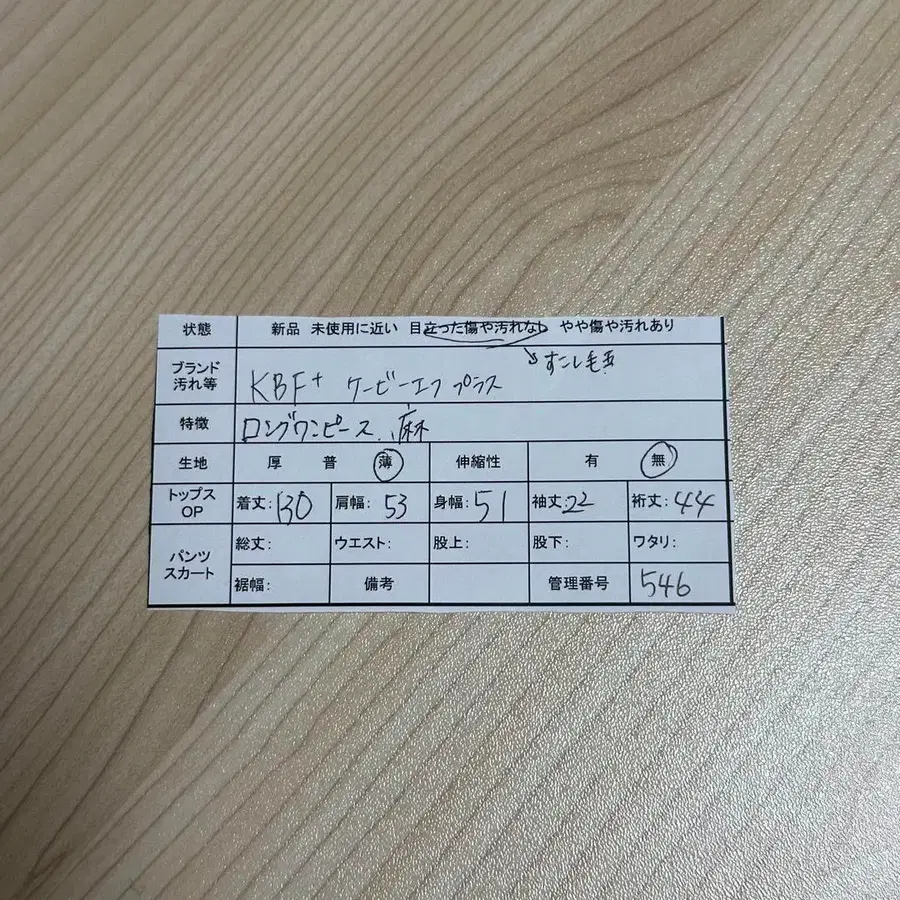 状態 新品 未使用に近い 目立った傷や汚れなし やや傷や汚れあり
すこし毛玉
ブランド
汚れ等 KBF+ ケービーエフ プラス
特徴 ロングワンピース、麻
生地 厚 普 薄 伸縮性 有 無
トップス
OP 着丈:130 肩幅:53 身幅:51 袖丈:22 裄丈:44
パンツ
スカート 総丈: ウエスト: 股上: 股下: ワタリ:
裾幅: 備考 管理番号 546